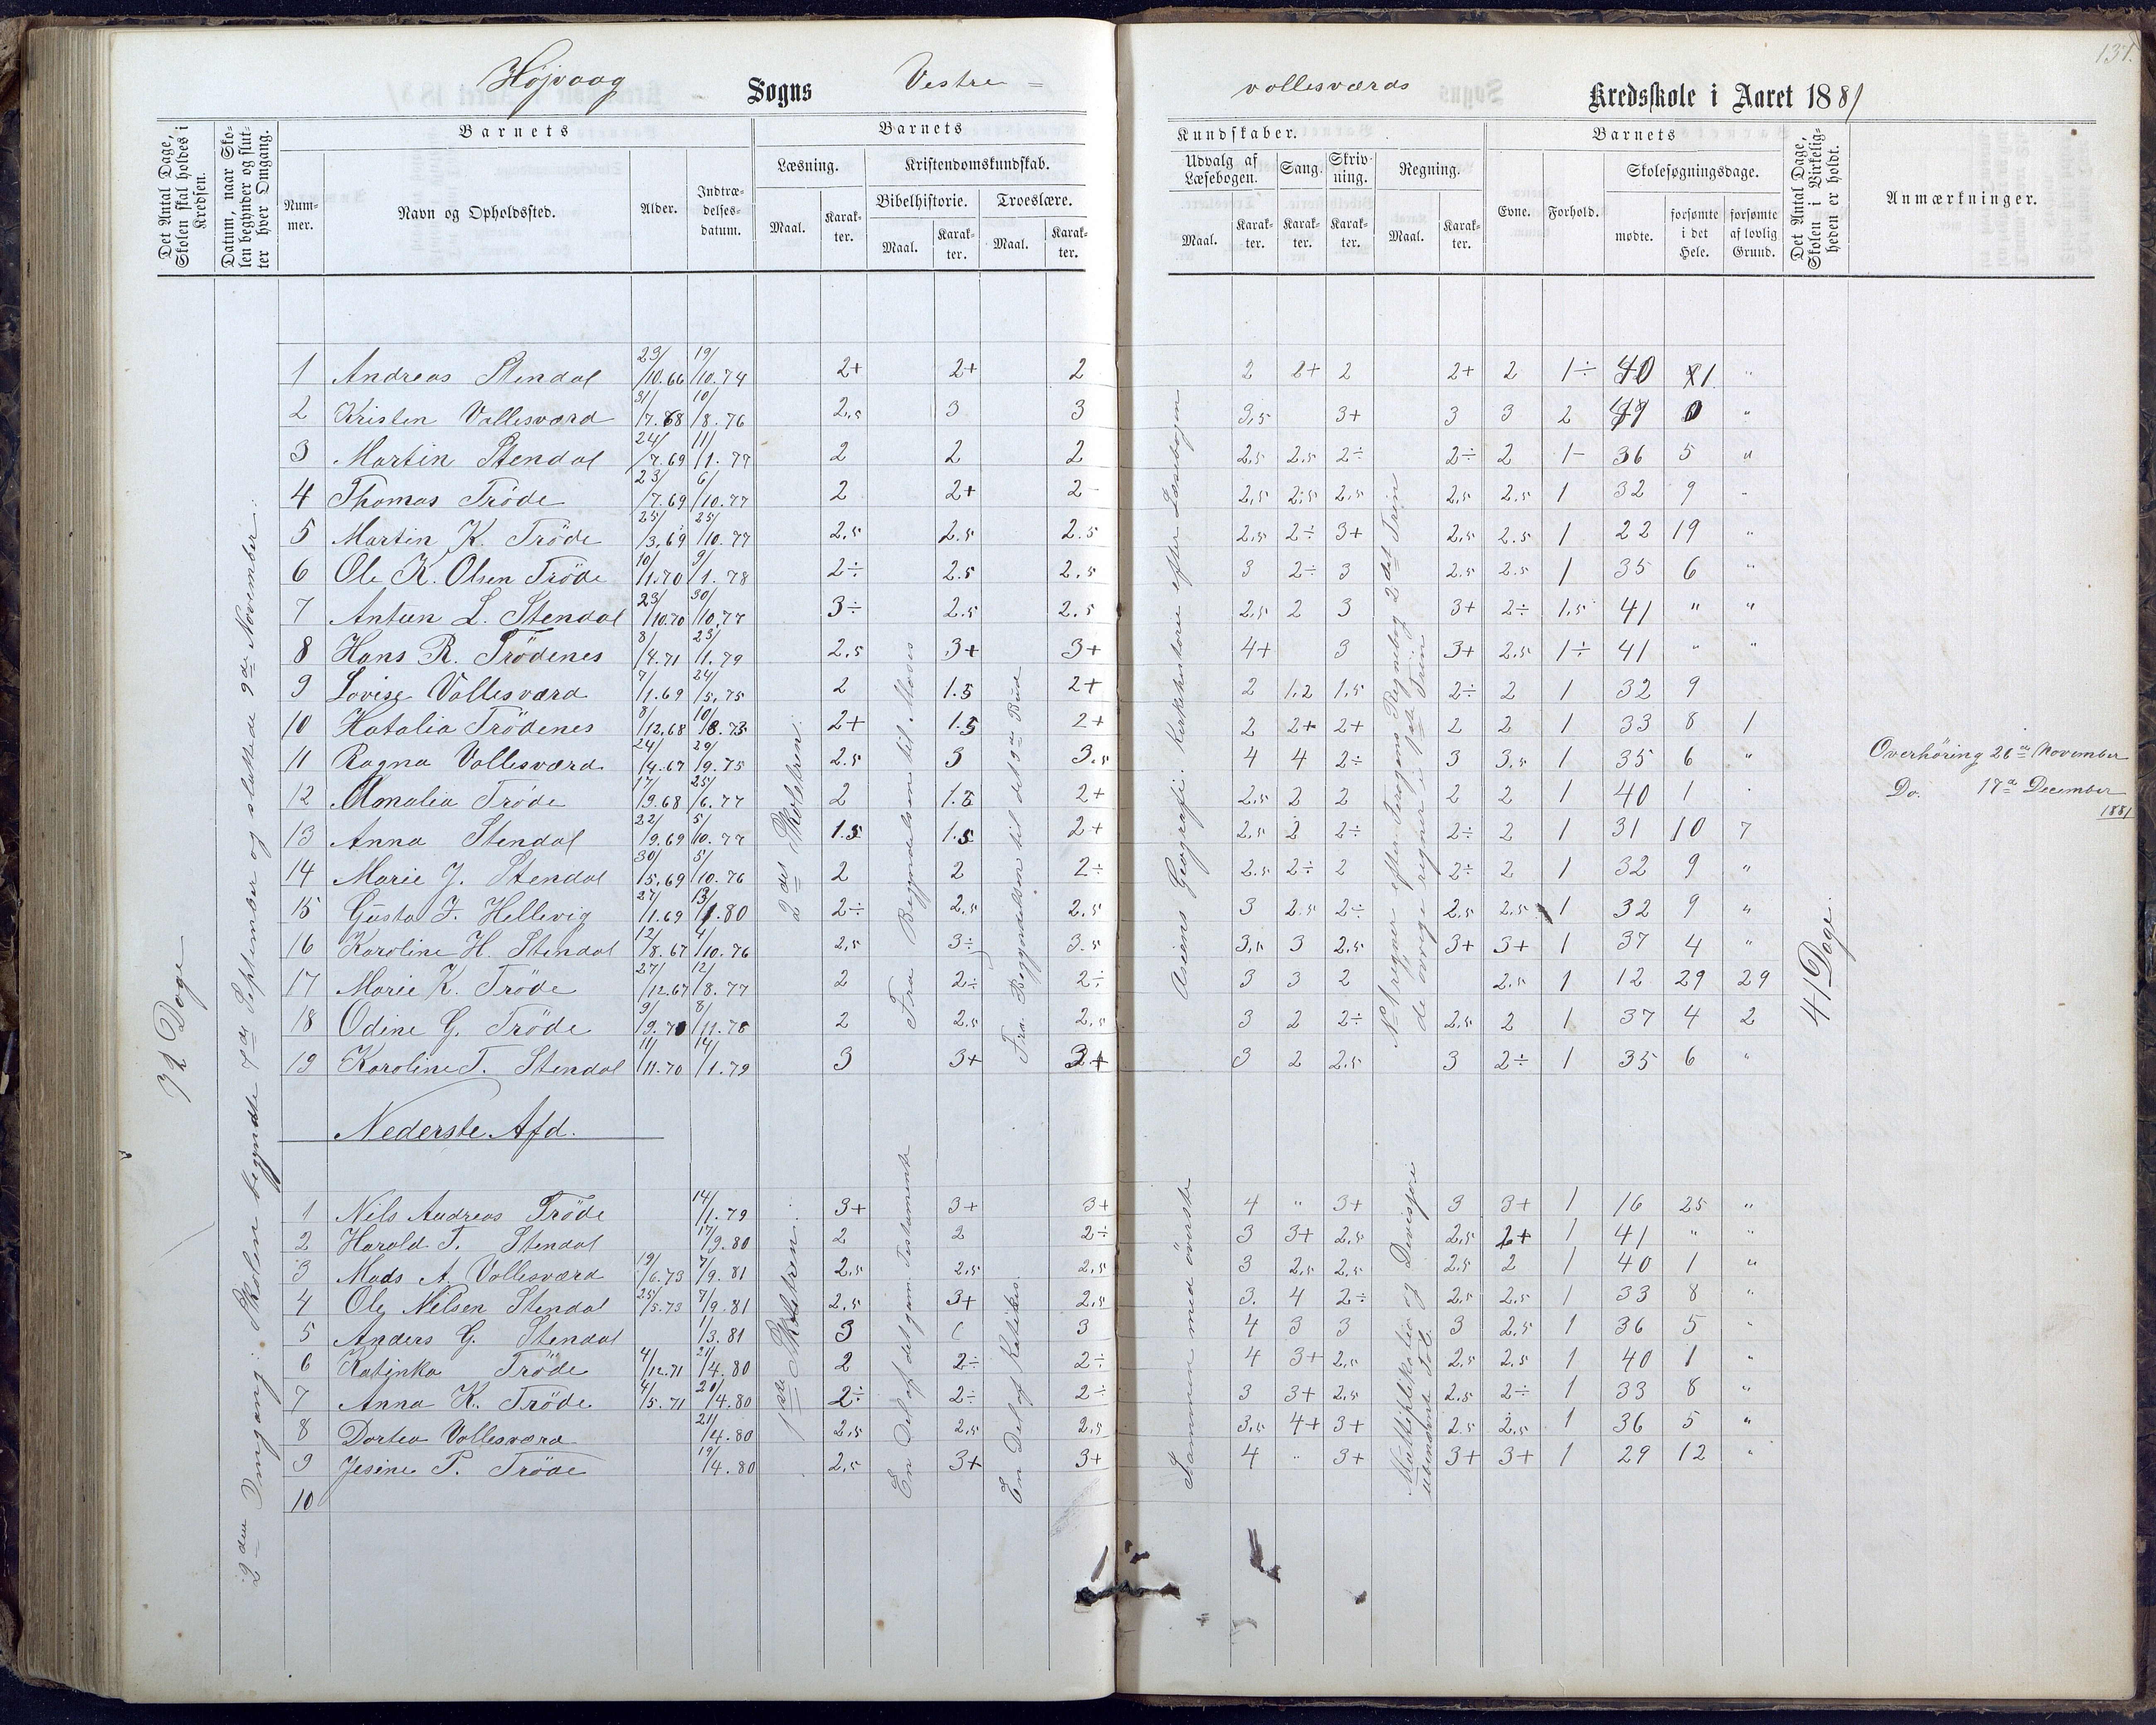 131.
Højvaag Sogns Vestre =
vollesværds Kredsskole i Aaret 1881
Det Antal Dage, Skolen skal holdes i Kredsen.
Datum, naar Skolen begynder og slutter hver Omgang.
Barnets
Nummer.
Navn og Opholdssted.
Alder.
Indtrædelsesdatum.
Barnets
Læsning.
Maal.
Karakter.
Kristendomskundskab.
Bibelhistorie.
Maal.
Karakter.
Troeslære.
Maal.
Karakter.
Kundskaber.
Udvalg af Læsebogen.
Maal.
Karakter.
Sang.
Karakter.
Skrivning.
Karakter.
Regning.
Maal.
Karakter.
Barnets
Evne.
Forhold.
Skolesøgningsdage.
mødte.
forsømte i det Hele.
forsømte af lovlig Grund.
Det Antal Dage, Skolen i Virkeligheden er holdt.
Anmærkninger.
2den Omgang: Skolen begyndte 7de September og sluttede 9de November.
2det Skoletrin.
Fra Begyndelsen til Moses
Fra Begyndelsen til det 9de Bud
Asiens Geografi. Kirkehistorie efter Læsebogen
No 1 regner efter Jerogins Regnebog 2det Trin
de øvrige regner i 1ste Trin
41 Dage.
1 Andreas Stendal 23/10.66 19/10.74 2+ 2+ 2 2 2+ 2 2+ 2 1÷ 40 1 "
2 Kristen Vollesværd 31/7.68 10/8.76 2,5 3 3 3,5 3+ 3 3 2 0 "
3 Martin Stendal 24/7.69 11/1.77 2 2 2 2,5 2,5 2÷ 2÷ 2 1- 36 5 "
4 Thomas Tröde 23/7.69 6/10.77 2 2+ 2- 2,5 2,5 2,5 2,5 2.5 1 32 9 -
5 Martin K. Tröde 25/3.69 25/10.77 2,5 2.5 2.5 2,5 2÷ 3+ 2,5 2.5 1 22 19 "
6 Ole K. Olsen Tröde 10/1.70 9/1.78 2÷ 2.5 2.5 3 2÷ 3 2.5 2.5 1 35 6 "
7 Anton L. Stendal 23/10.70 30/10.77 3÷ 2.5 2.5 2,5 2 3 3+ 2÷ 1,5 41 " "
8 Hans R. Trödenes 8/4.71 23/1.79 2,5 3+ 3+ 4+ 3 3+ 2,5 1÷ 41 " "
9 Lovise Vollesværd 7/1.69 24/5.75 2 1.5 2+ 2 1,2 1,5 2÷ 2 1 32 9
10 Hatalia Trödenes 8/12.68 10/8.75 2+ 1.5 2+ 2 2+ 2+ 2 2 1 33 8 1
11 Ragna Vollesværd 24/4.67 29/9.75 2.5 3 3.5 4 4 2÷ 3 3,5 1 35 6 " Overhöring 26de November
12 Amalia Tröde 17/9.68 25/6.77 2 1.5 2+ 2,5 2 2 2 2 1 40 1 . Do. 17de December 1881
13 Anna Stendal 22/9.69 5/10.77 1.5 1.5 2+ 2,5 2 2÷ 2÷ 2 1 31 10 7
14 Marie J. Stendal 30/5.69 5/10.76 2 2 2÷ 2.5 2÷ 2 2÷ 2 1 32 9 "
15 Gusta J. Hellevig 27/1.69 13/1.80 2÷ 2,5 2,5 3 2.5 2÷ 2,5 2.5 1 32 9 "
16 Karoline H. Stendal 12/8.67 4/10.76 2,5 3÷ 3.5 3,5 3 2,5 3+ 3+ 1 37 4 "
17 Marie K. Tröde 27/12.67 12/8.77 2 2÷ 2÷ 3 3 2 2.5 1 12 29 29
18 Odine G. Tröde 9/9.70 8/11.78 2 2.5 2,5 3 2 2÷ 2,5 2 1 37 4 2
19 Karoline T. Stendal 11/11.70 14/1.79 3 3+ 3+ 3 2 2,5 3 2÷ 1 35 6 "
Nederste Afd.
1ste Skoletrin.
En Del af det gam. Testamente
En Del af Katekis.
Sammen med överste
Multiplikation og Division
ubenævnte Tal.
1 Nils Andreas Tröde 14/1.79 3+ 3+ 3+ 4 " 3+ 3 3+ 1 16 25 "
2 Harald T. Stendal 17/9.80 2 2 2÷ 3 3+ 2,5 2,5 2+ 1 41 " "
3 Mads A. Vollesværd 19/6.73 7/9.81 2,5 2,5 2,5 3 2,5 2,5 2.5 2 1 40 1 "
4 Ole Nilsen Stendal 25/5.73 7/9.81 2,5 3+ 2,5 3. 4 2÷ 2,5 2,5 1 33 8 "
5 Anders G. Stendal 1/3.81 3 3 4 3 3 3 2,5 1 36 5 "
6 Katinka Tröde 4/12.71 21/4.80 2 2÷ 2÷ 4 3+ 2,5 2,5 2.5 1 40 1 "
7 Anna K. Tröde 4/5.71 20/4.80 2÷ 2÷ 2÷ 3 3+ 2,5 2,5 2÷ 1 33 8 "
8 Dortea Vollesværd 21/4.80 2,5 2,5 2,5 3,5 4+ 3+ 2.5 2,5 1 36 5 "
9 Jesine P. Tröde 19/4.80 2,5 3+ 3+ 4 " 3+ 3+ 3+ 1 29 12 "
10